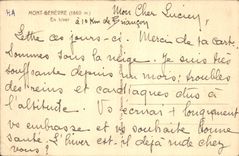 4A
MONT-GENÈVRE (1860 m.)
En hiver
à 10 Km de Briançon
Mon Cher Lucien,
Lettre ces jours-ci. Merci de ta cart.
Sommes sous la neige. Je suis très
souffrante depuis un mois: troubles
des reins et cardiaques dus à
l'altitude. Vs écrirai + longuement
vs embrasse et vs souhaite bonne
santé. L'hiver est-il déjà rude chez
vous?